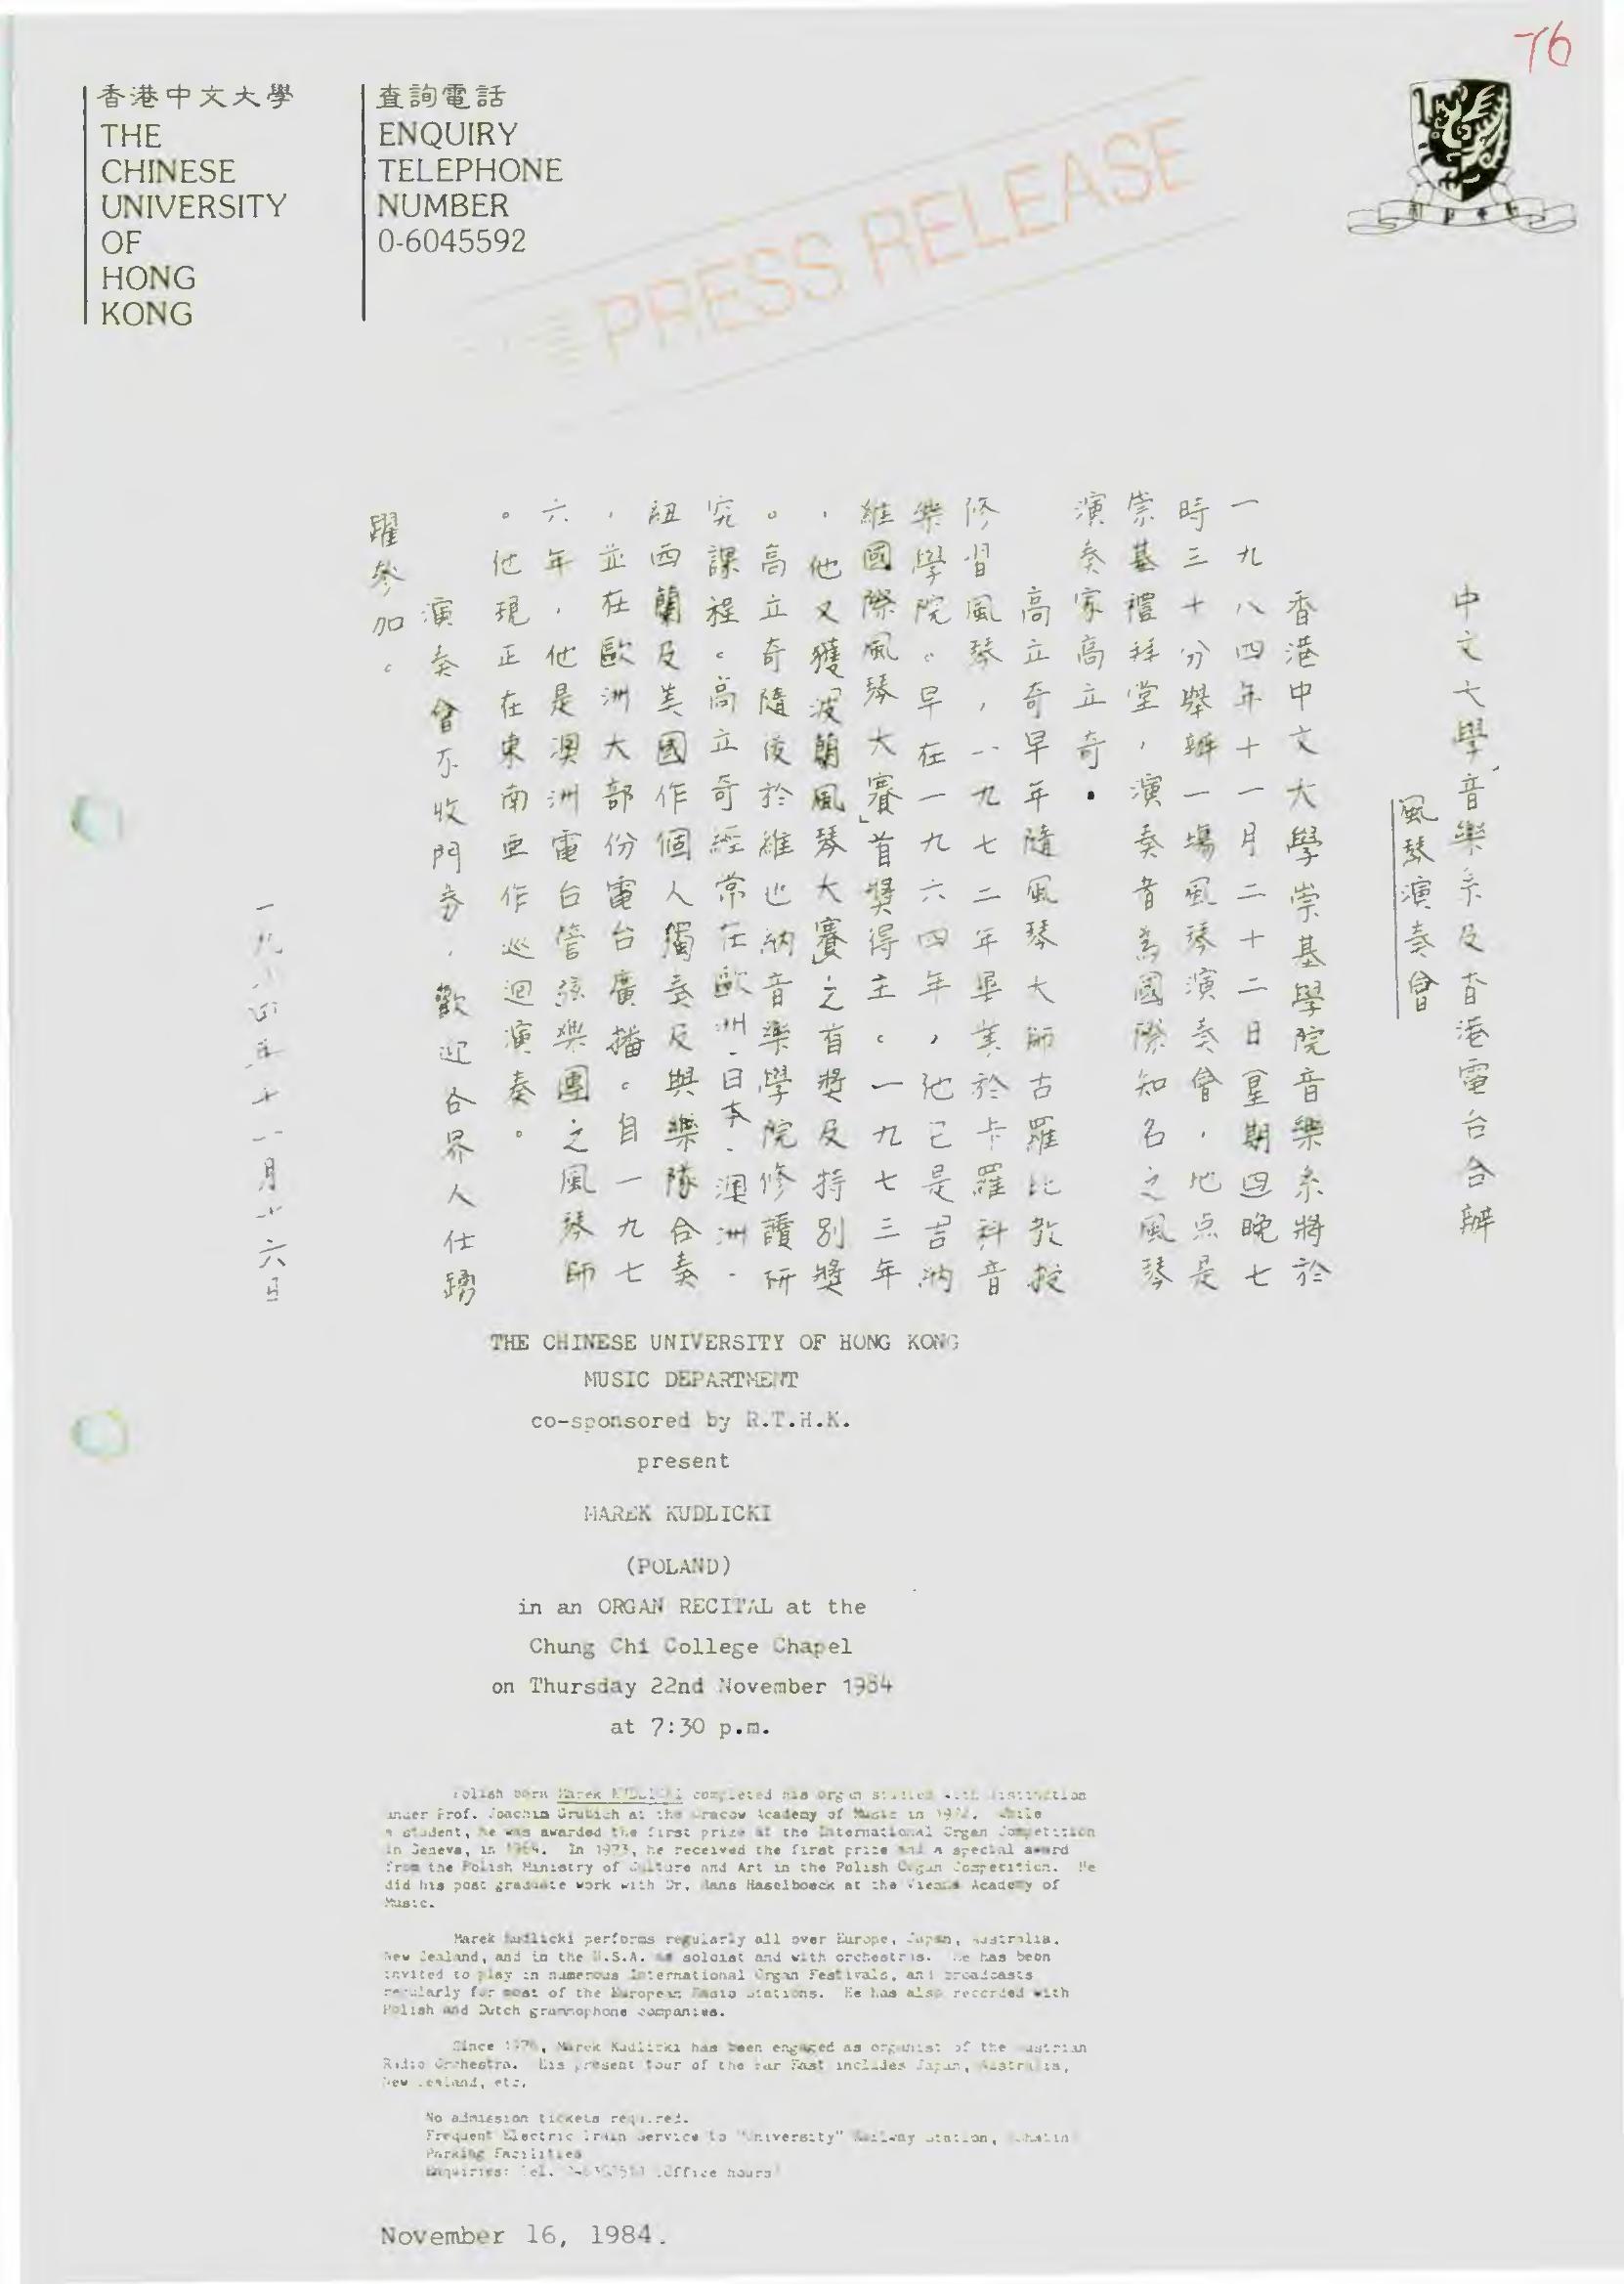 76
香港中文大學
THE
CHINESE
UNIVERSITY
OF
HONG
KONG
查詢電話
ENQUIRY
TELEPHONE
NUMBER
0-6045592
PRESS RELEASE
中文大學音樂系及香港電台合辦
風琴演奏會
香港中文大學崇基學院音樂系將於
一九八四年十一月二十二日星期四晚七
時三十分舉辦一場風琴演奏會，地点是
崇基禮拜堂，演奏者為國際知名之風琴
演奏家高立奇。
高立奇早年隨風琴大師古羅比教授
修習風琴，一九七二年畢業於卡羅科音
樂學院。早在一九六四年，他已是「吉納
維國際風琴大賽」首獎得主。一九七三年
，他又獲「波蘭風琴大賽」之首獎及特別獎
。高立奇隨後於維也納音樂學院修讀研
究課程。高立奇經常在歐洲、日本、澳洲、
紐西蘭及美國作個人獨奏及與樂隊合奏
，並在歐洲大部份電台廣播。自一九七
六年，他是澳洲電台管弦樂團之風琴師
。他現正在東南亜作巡迴演奏。
演奏會不收門券，歡迎各界人仕踴
躍參加。
一九八四年十一月十六日
THE CHINESE UNIVERSITY OF HONG KONG
MUSIC DEPARTMENT
co-sponsored by R.T.H.K.
present
MAREK KUDLICKI
(POLAND)
in an ORGAN RECITAL at the
Chung Chi College Chapel
on Thursday 22nd November 1984
at 7:30 p.m.
Polish born Marek KUDLICKI completed his organ studies with distinction
under Prof. Joachim Grubich at the Cracow Academy of Music in 1972. While
a student, he was awarded the first prize at the International Organ Competition
in Geneva, in 1964. In 1973, he received the first prize and a special award
from the Polish Ministry of Culture and Art in the Polish Organ Competition. He
did his post graduate work with Dr. Hans Haselboeck at the Vienna Academy of
Music.
Marek Kudlicki performs regularly all over Europe, Japan, Australia,
New Zealand, and in the U.S.A. as soloist and with orchestras. He has been
invited to play in numerous International Organ Festivals, and broadcasts
regularly for most of the European Radio Stations. He has also recorded with
Polish and Dutch grammophone companies.
Since 1976, Marek Kudlicki has been engaged as organist of the Austrian
Radio Orchestra. His present tour of the Far East includes Japan, Australia,
New Zealand, etc.
No admission tickets required.
Frequent Electric Train Service to "University" Railway Station, Shatin
Parking Facilities
Enquiries: Tel. (Office hours)
November 16, 1984.